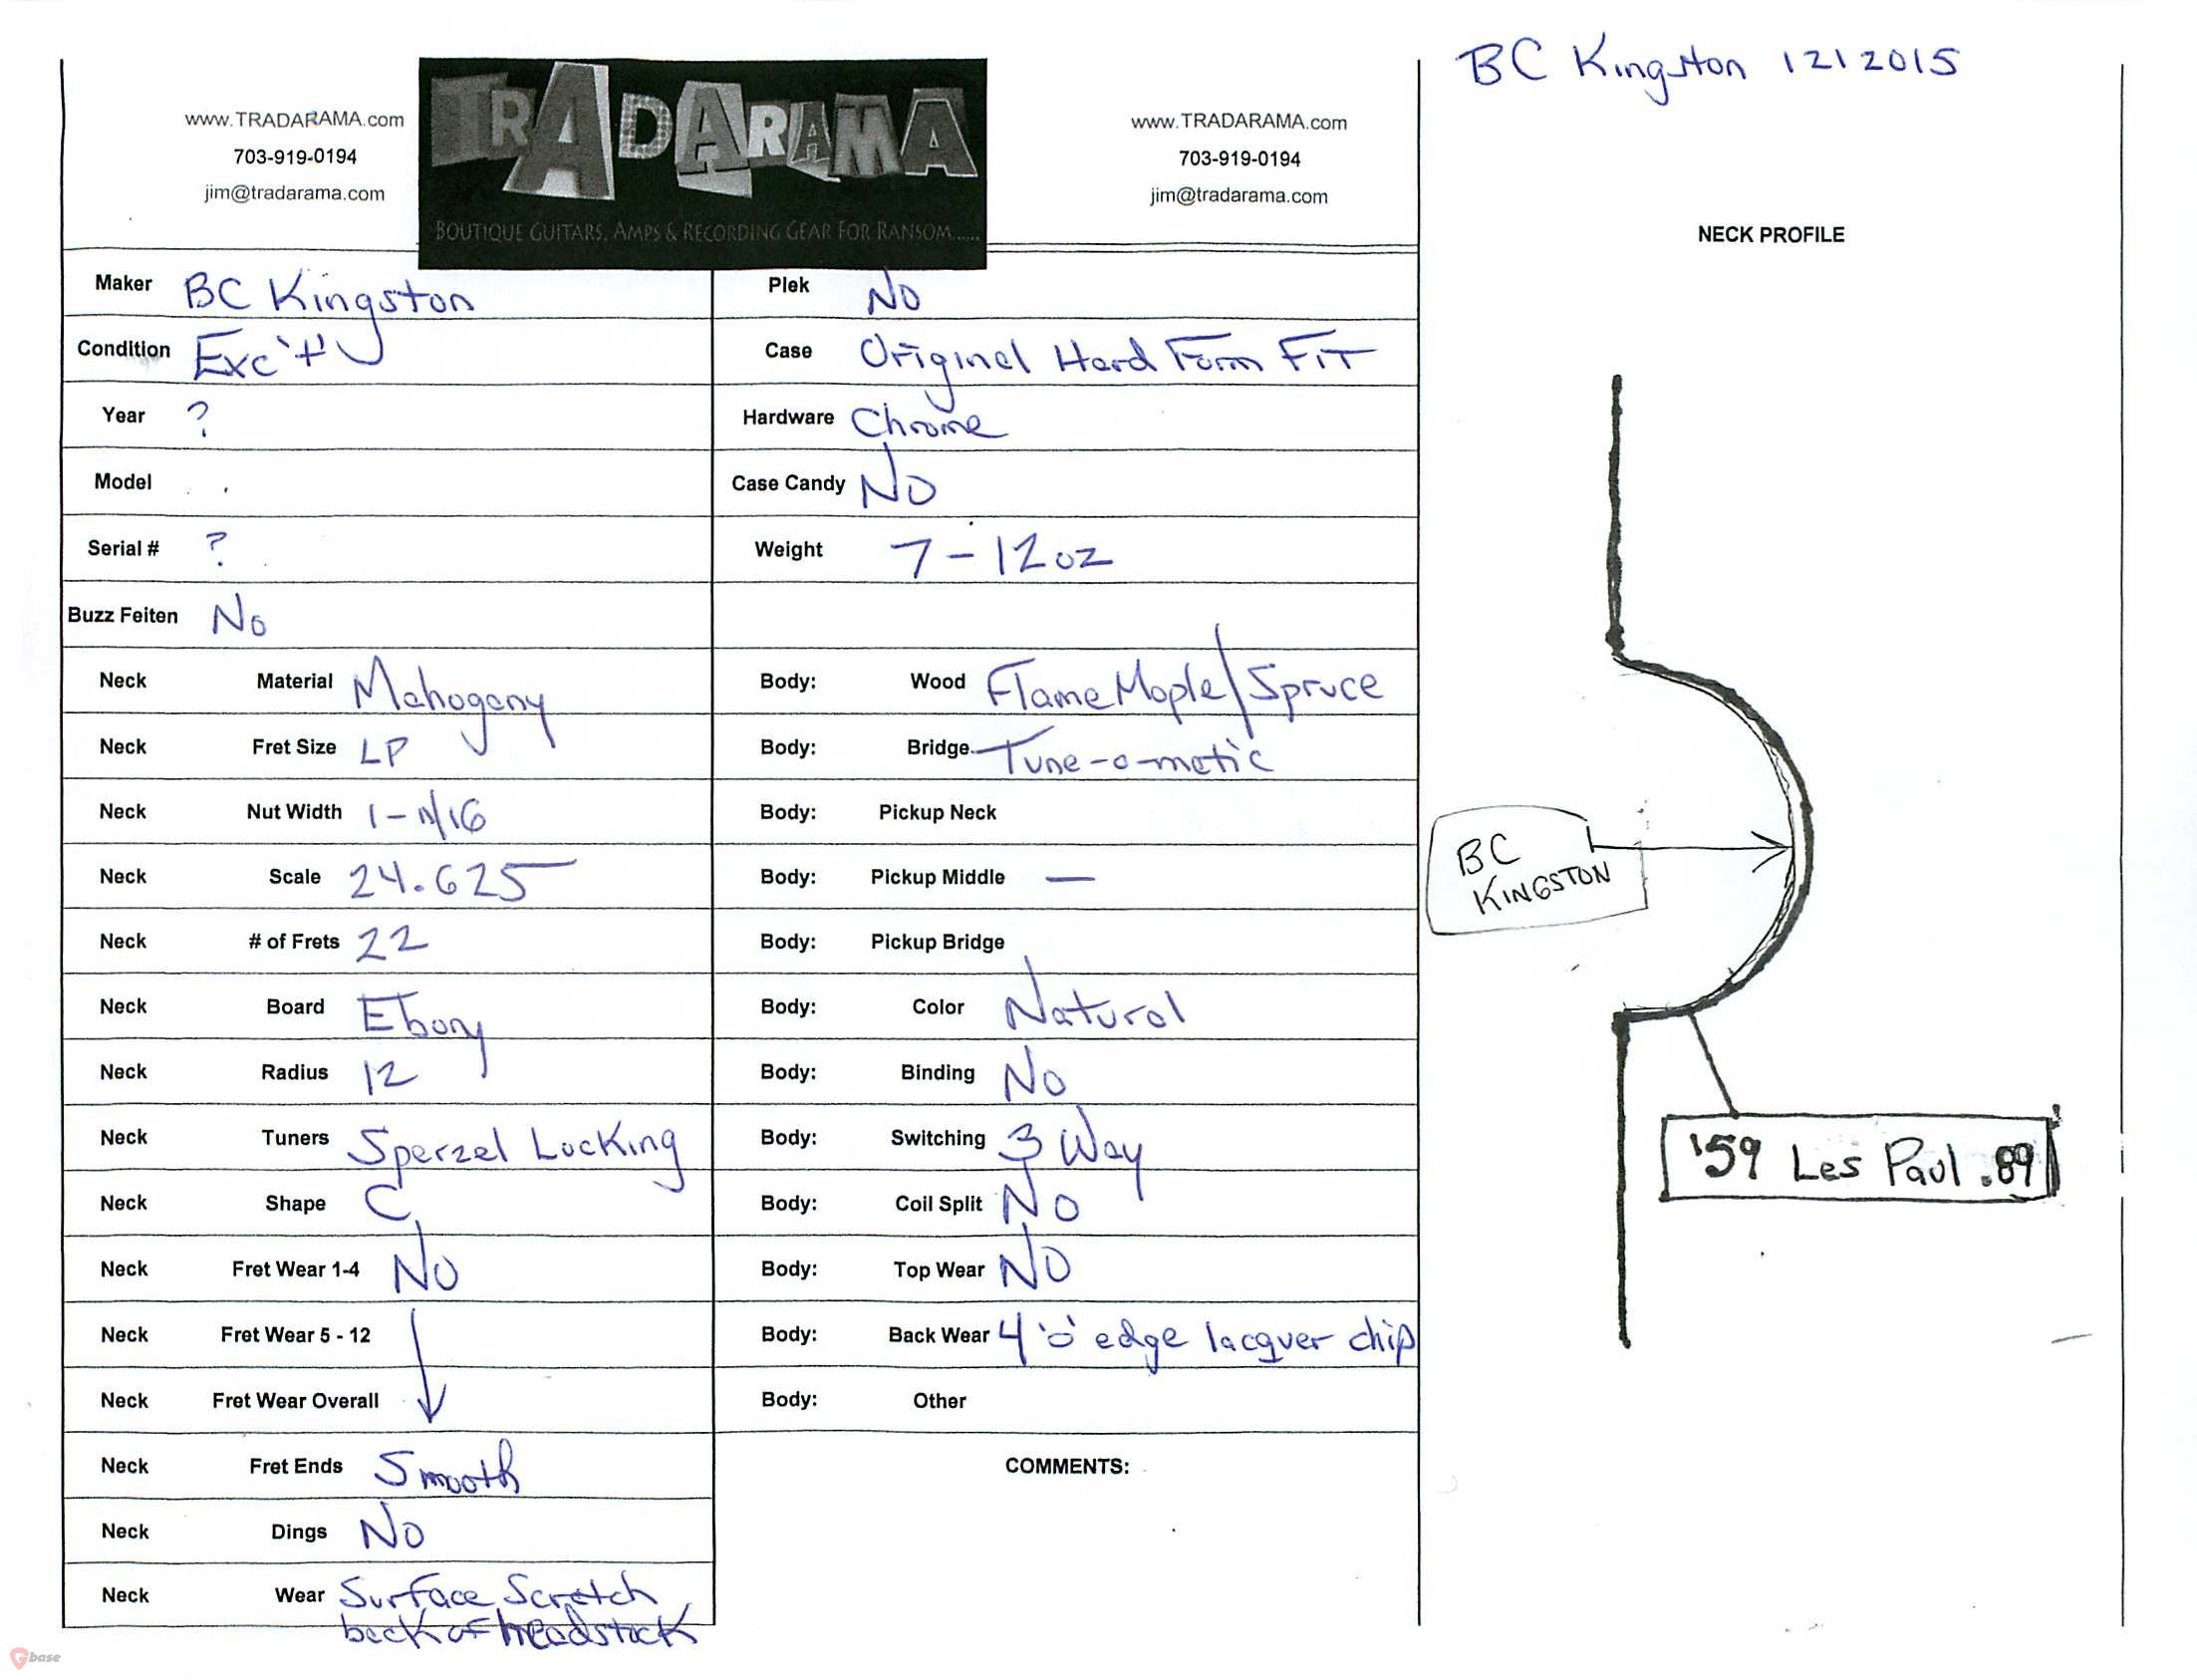 BC Kingston 12 1 2015
www.TRADARAMA.com
703-919-0194
jim@tradarama.com
TRADARAMA
BOUTIQUE GUITARS, AMPS & RECORDING GEAR FOR RANSOM......
www.TRADARAMA.com
703-919-0194
jim@tradarama.com
NECK PROFILE
Maker BC Kingston
Condition Exc '+'
Year ?
Model
Serial # ?
Buzz Feiten No
Neck Material Mahogany
Neck Fret Size LP
Neck Nut Width 1-11/16
Neck Scale 24.625
Neck # of Frets 22
Neck Board Ebony
Neck Radius 12
Neck Tuners Sperzel Locking
Neck Shape C
Neck Fret Wear 1-4 No
Neck Fret Wear 5 - 12
Neck Fret Wear Overall
Neck Fret Ends Smooth
Neck Dings No
Neck Wear Surface Scratch
back of headstock
Plek No
Case Original Hard Form FiT
Hardware Chrome
Case Candy No
Weight 7-12oz
Body: Wood Flame Maple/Spruce
Body: Bridge Tune-o-matic
Body: Pickup Neck
Body: Pickup Middle —
Body: Pickup Bridge
Body: Color Natural
Body: Binding No
Body: Switching 3 Way
Body: Coil Split No
Body: Top Wear No
Body: Back Wear 4 'o' edge lacquer chip
Body: Other
COMMENTS:
BC
KINGSTON
'59 Les Paul .89
Gbase